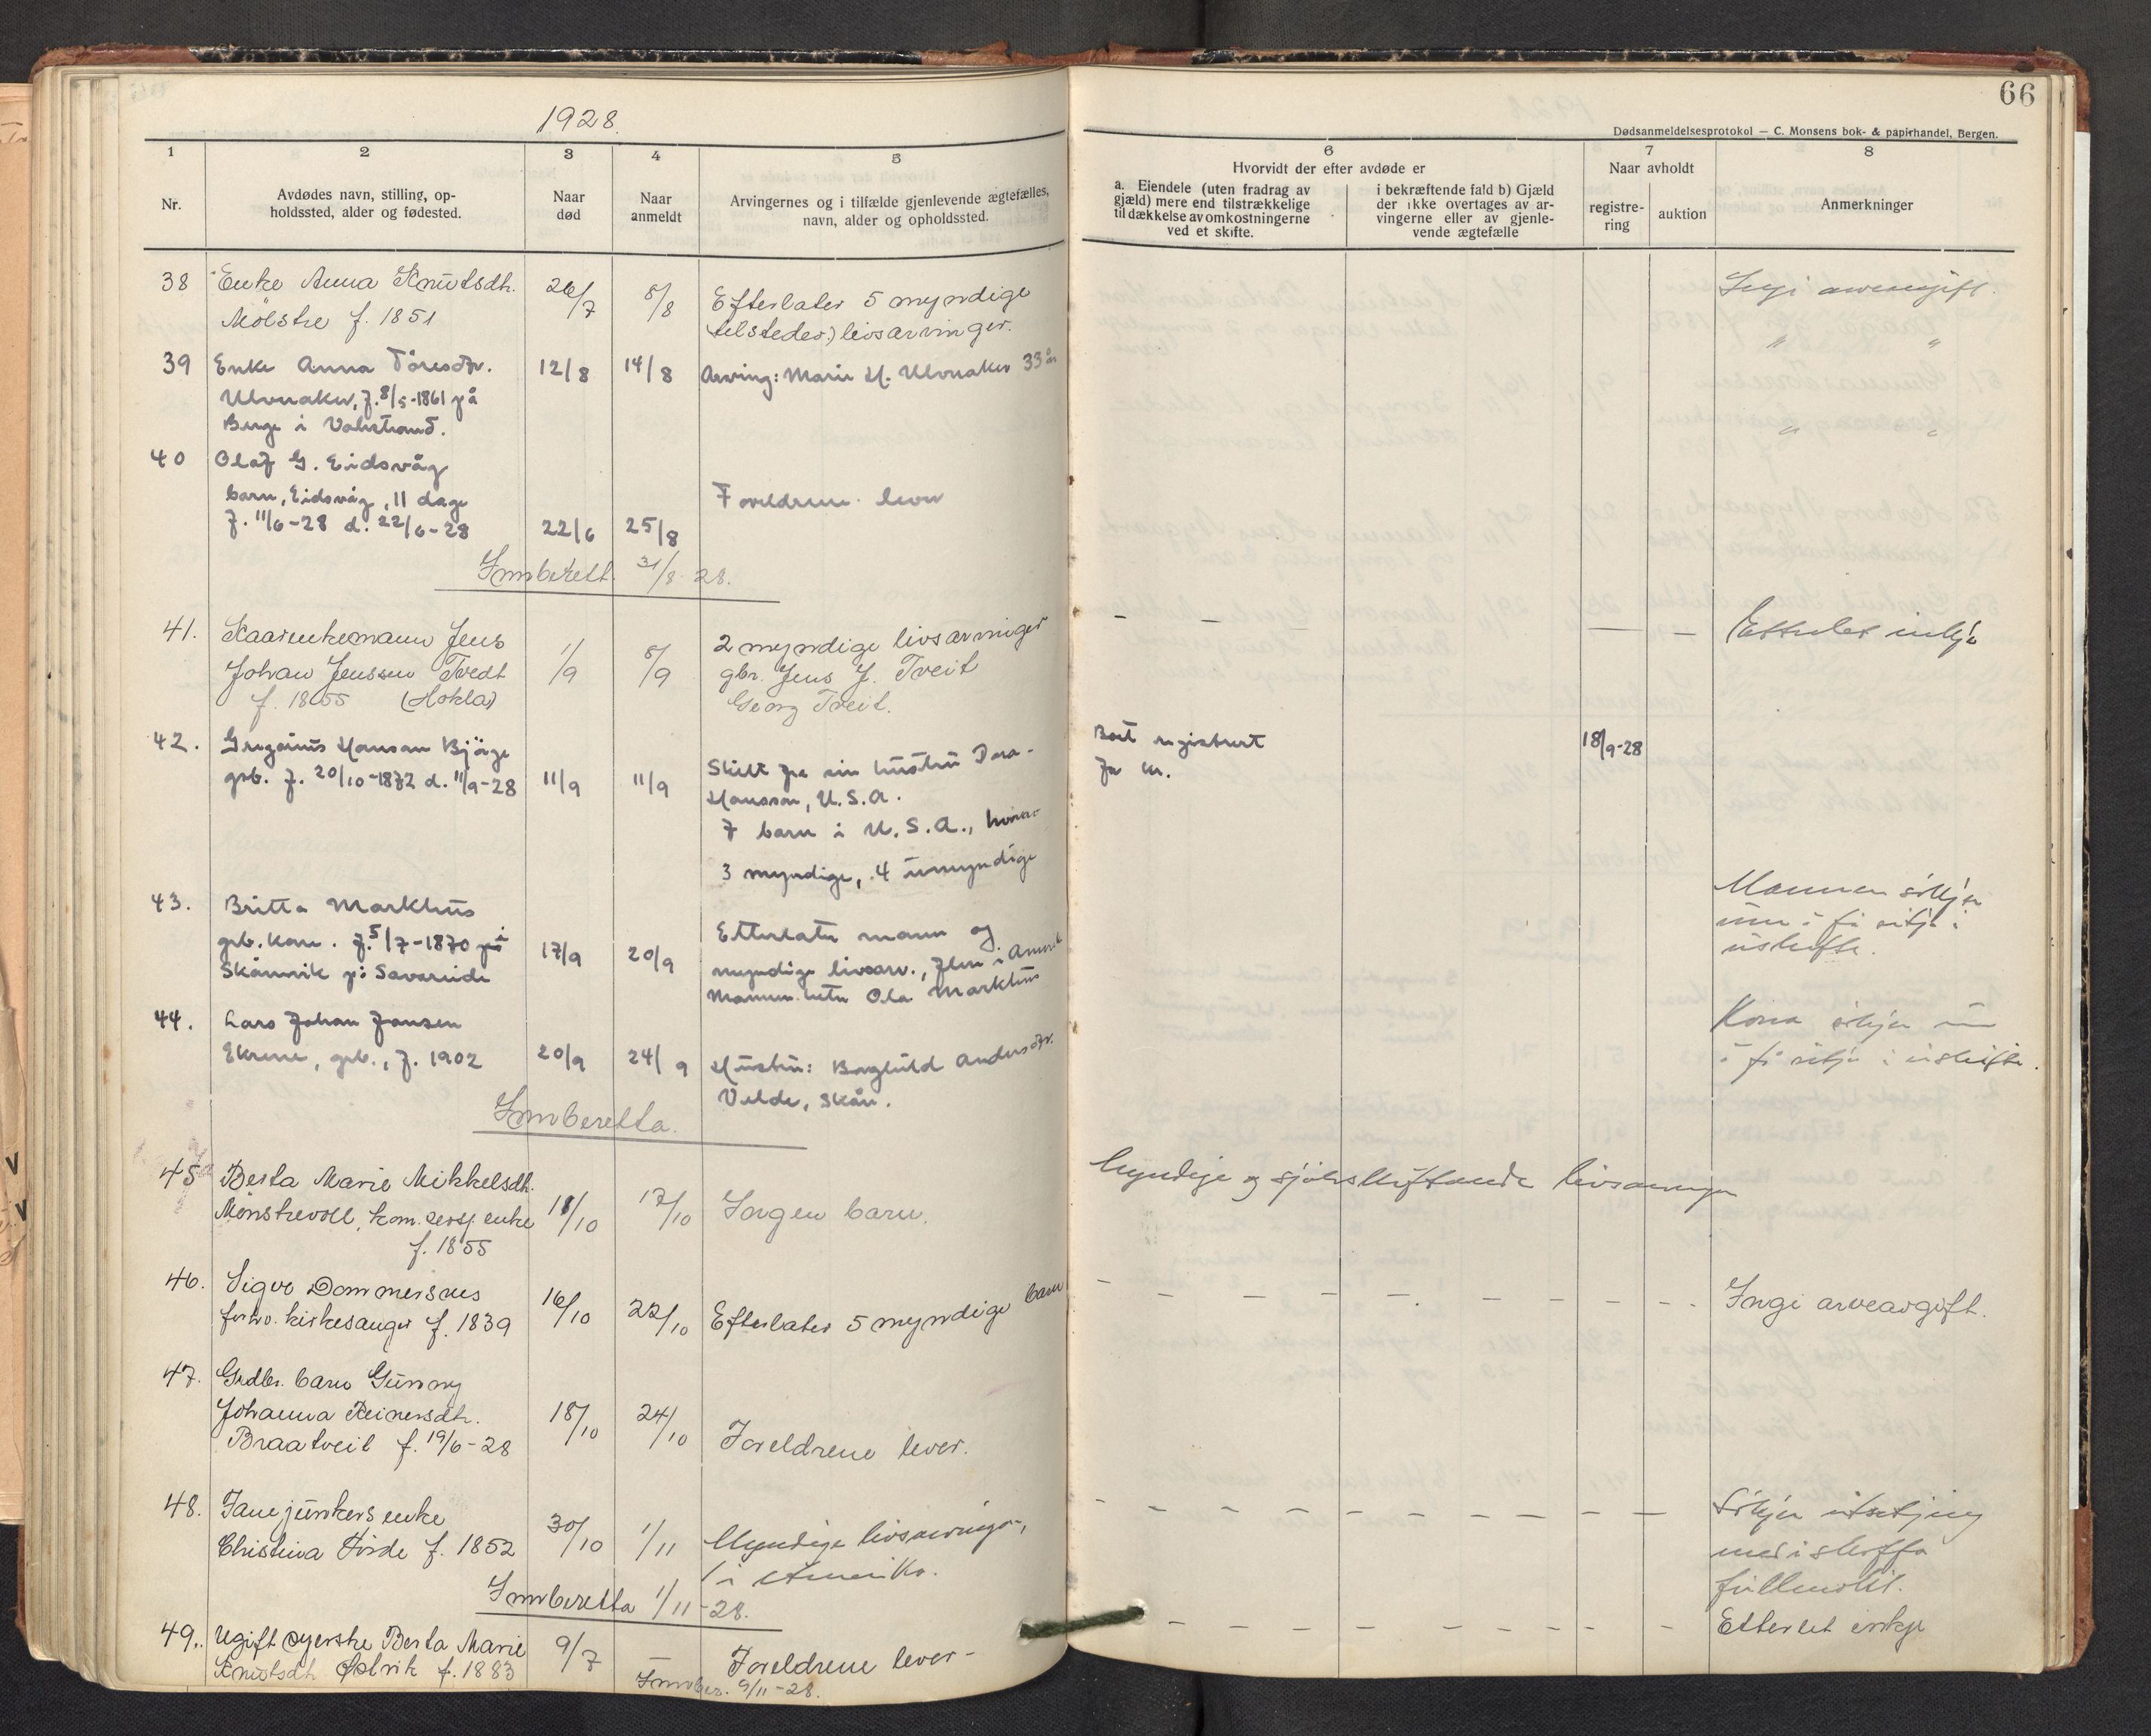 1928.
66
Dødsanmeldelsesprotokol — C. Monsens bok- & papirhandel, Bergen.
1
2
3
4
5
6
7
8
Nr.
Avdødes navn, stilling, op-
holdssted, alder og fødested.
Naar
død
Naar
anmeldt
Arvingernes og i tilfælde gjenlevende ægtefælles,
navn, alder og opholdssted.
Hvorvidt der efter avdøde er
a. Eiendele (uten fradrag av
gjæld) mere end tilstrækkelige
til dækkelse av omkostningerne
ved et skifte.
i bekræftende fald b) Gjæld
der ikke overtages av ar-
vingerne eller av gjenle-
vende ægtefælle
Naar avholdt
registre-
ring
auktion
Anmerkninger
38 Enke Anna Knutsdtr. 26/7 8/8 Efterlater 5 myndige
Mölstre f. 1851
livsarvinger.
Ingi arveavgift.
" "
39 Enke Anna Töresdtr. 12/8 14/8 Arving: Marie H. Ulvenaker 33 år
Ulvenaker, f. 8/5-1861 på
Berge i Valestrand.
" "
40 Olaf G. Eidsvåg
barn, Eidsvåg, 11 dage
f. 11/6-28 d. 22/6-28 22/6 25/8
Foreldrene lever
Innberett 31/8 28.
41. Kaarenkemann Jens
Johan Jenssen Tvedt 1/9 8/9
f. 1855 (Hokla)
2 myndige livsarvinger
gbr. Jens J. Tveit
Georg Tveit.
Etterlet inkje
42. Gregorius Hansen Bjørge
grb. f. 20/10-1872 d. 11/9-28 11/9 11/9
Skilt fra sin hustru Dora
Hansen, U.S.A.
7 barn i U.S.A., hvorav
3 myndige, 4 umyndige
Boet registrert
for kr.
18/9-28
43. Britta Markhus
grb. kone. f. 5/7-1870 i
Skånevik på Savareide 17/9 20/9
Etterlater mann og
myndige livsarv., flere i Amerik
Mannen heter Ola Markhus
Mannen sökjer
um å få sitja i
uskifte.
44. Lars Johan Jansen
Ekrene, grb., f. 1902 20/9 24/9
Hustru: Borghild Andersdtr.
Velde, Skån.
Kona sökjer um
å få sitja i uskifte.
Innberetta.
45 Berta Marie Mikkelsdtr.
Mönstrevoll, enke 11/10 17/10 Ingen barn.
f. 1855
Myndige og sjølvskiftande livsarvinger
46. Sigvo Dommersnes
forhv. kirkesanger f. 1839 16/10 22/10 Efterlater 5 myndige barn
Ingi arveavgift.
47. Grdbr. barn Gunny
Johanna Reinersdtr.
Braatveit f. 19/6-28 18/10 24/10 Foreldrene lever.
48. Fanejunkers enke
Christina Förde f. 1852 30/10 1/11 Myndige livsarvinger,
1 i Amerika.
Sökjer utsetjing
med å skaffa
fullmakt.
Innberetta 1/11-28.
49. Ugift syerske Berta Marie 9/7 Foreldrene lever-
Knutsdtr Ølvik f. 1883
Etterlet inkje
Innber. 9/11-28.